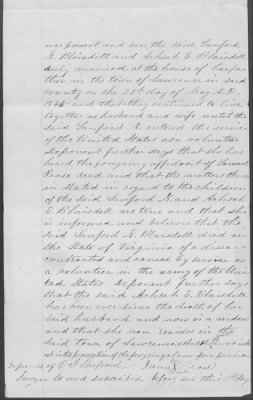 was present and saw the said Sanford
N. Blaisdell and Achsah E. Blaisdell
duly married at the house of her fa-
ther in the town of Lawrence in said
county on the 22d day of May A.D.
and that they continued to live
together as husband and wife until the
said Sanford N. entered the service
of the United States as a volunteer
Deponent further says that she has
heard the foregoing affidavit of
Pease read and that the matters there
in stated in regard to the children
of the said Sanford N. and Achsah
E. Blaisdell are true and that she
is informed and believes that the
said Sanford N. Blaisdell died in
the State of Virginia of a disease
contracted and caused by service as
a volunteer in the army of the Uni-
ted States. Deponent further says
that the said Achsah E. Blaisdell
has been ever since the death of her
said husband and now is a widow
and that she now resides in the
said town of Lawrence
est in the prosecution of the foregoing claim for pension
In presence of
Sworn to and subscribed before me this day